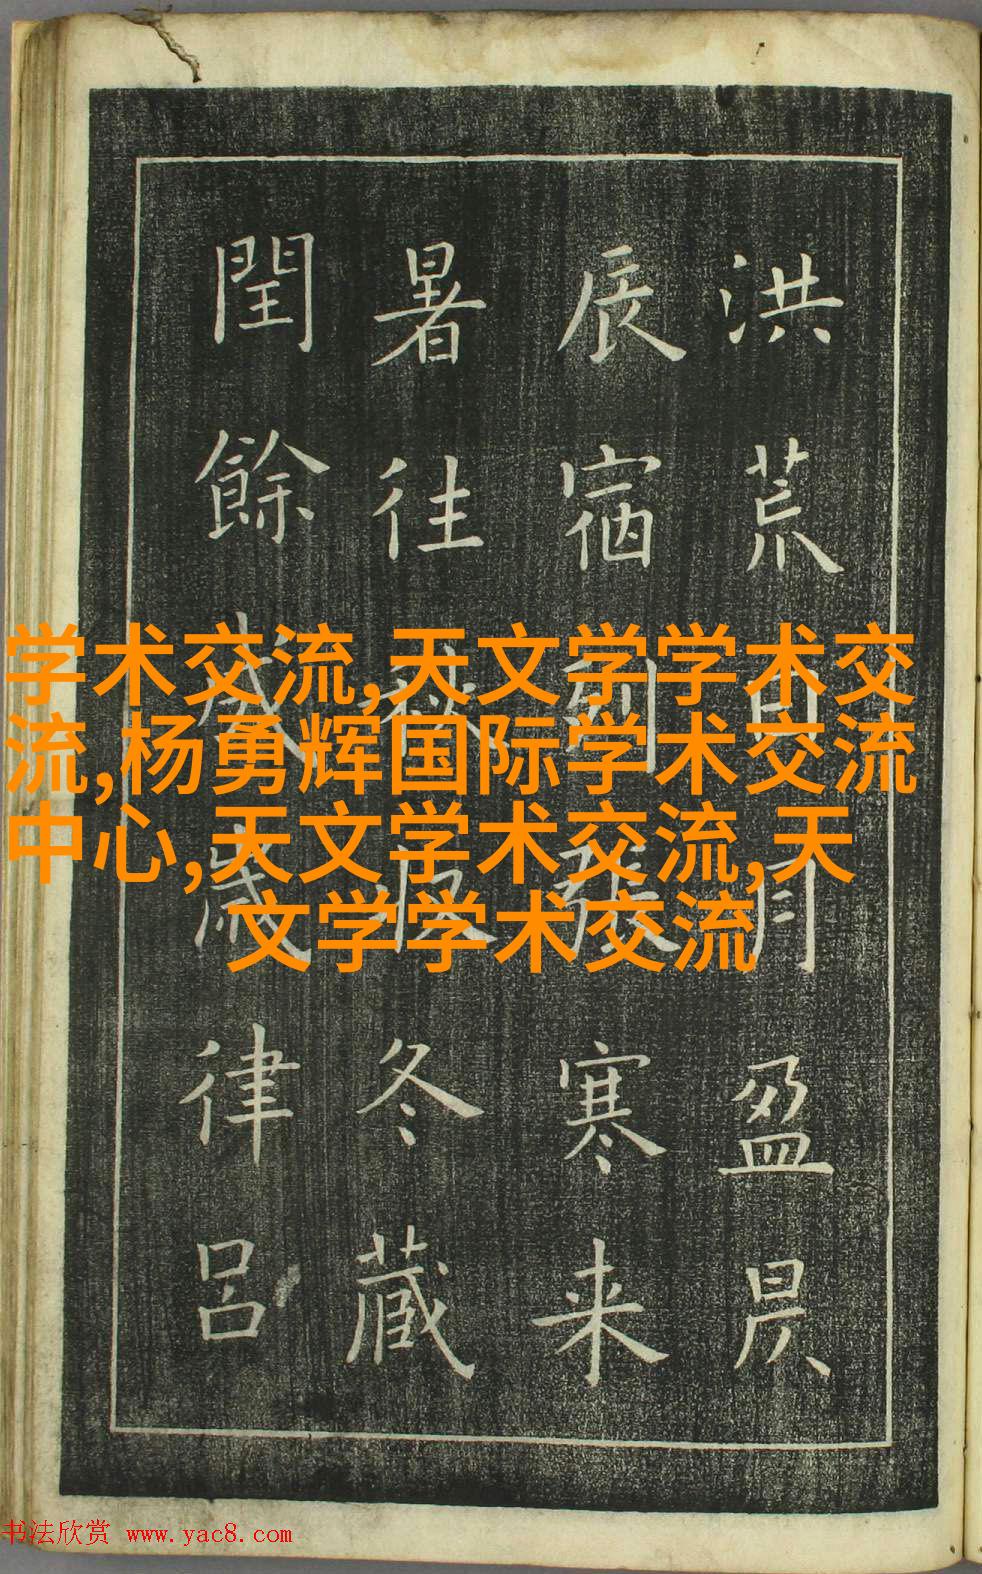 洪荒日月盈昃
辰宿列張寒来
暑往秋收冬藏
閏餘成歲律呂
学术交流,天文学学术交
流,杨勇辉国际学术交流
中心,天文学术交流,天
文学学术交流
书法欣赏 www.yac8.com